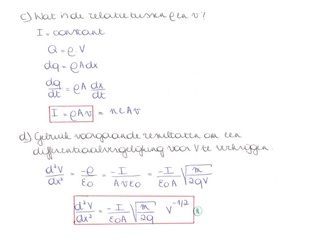 c) Wat is de relatie tussen ρ en v?
I = constant
Q = ρ V
dq = ρ A dx
dq/dt = ρ A dx/dt
I = ρ A v = n e A v
d) Gebruik voorgaande resultaten om een
differentiaalvergelijking voor V te verkrijgen.
d²V/dx² = -ρ/ε₀ = -I/(A v ε₀) = -I/(ε₀A) √(m/(2qV))
d²V/dx² = -I/(ε₀A) √(m/(2q)) V^(-1/2)